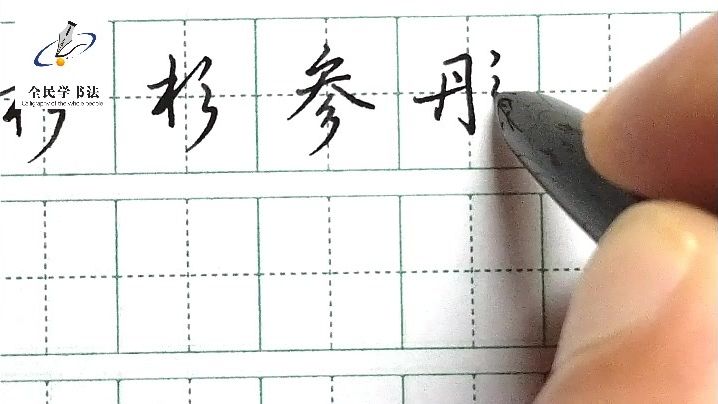 全民学书法
Calligraphy of the whole people
杉参彤